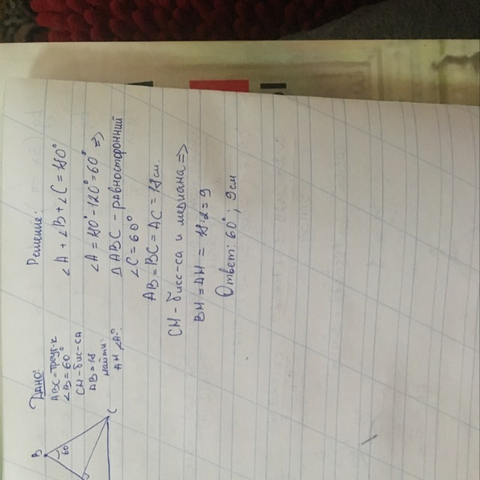 Дано:
ABC - треуг-к
∠B = 60°
CH - бис-са
AB = 18
Найти:
AH ∠A°
B
60
C
Решение:
∠A + ∠B + ∠C = 180°
∠A = 180° - 120° = 60° ⇒
△ABC - равносторонний
∠C = 60°
AB = BC = AC = 18 см
CH - бисс-са и медиана ⇒
BH = AH = 18 : 2 = 9
Ответ: 60°; 9 см